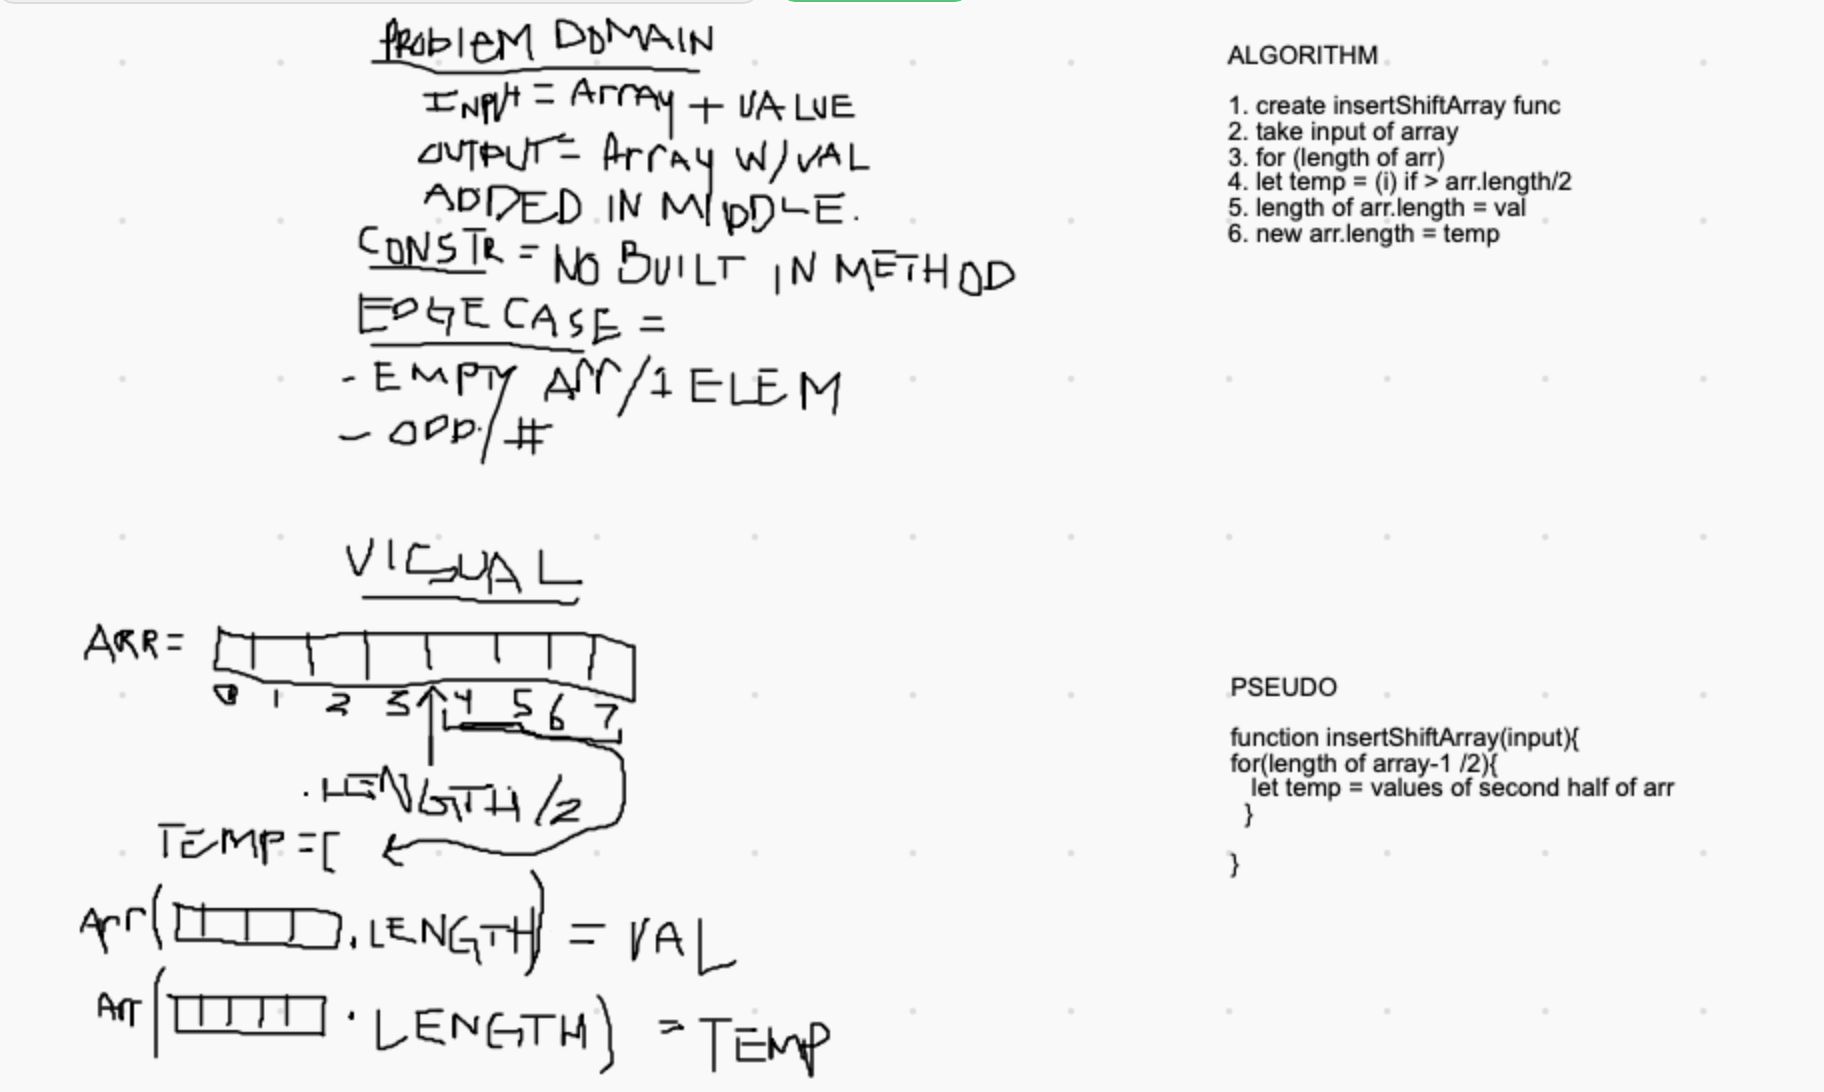 PROBLEM DOMAIN
INPUT = Array + VALUE
OUTPUT = Array W/VAL
ADDED IN MIDDLE.
CONSTR = NO BUILT IN METHOD
EDGE CASE =
- EMPTY Arr/1 ELEM
- ODD/#
VISUAL
ARR=
0 1 2 3 4 5 6 7
.LENGTH/2
TEMP =[
Arr( .LENGTH) = VAL
Arr( .LENGTH) = TEMP
ALGORITHM
1. create insertShiftArray func
2. take input of array
3. for (length of arr)
4. let temp = (i) if > arr.length/2
5. length of arr.length = val
6. new arr.length = temp
PSEUDO
function insertShiftArray(input){
for(length of array-1 /2){
let temp = values of second half of arr
}
}